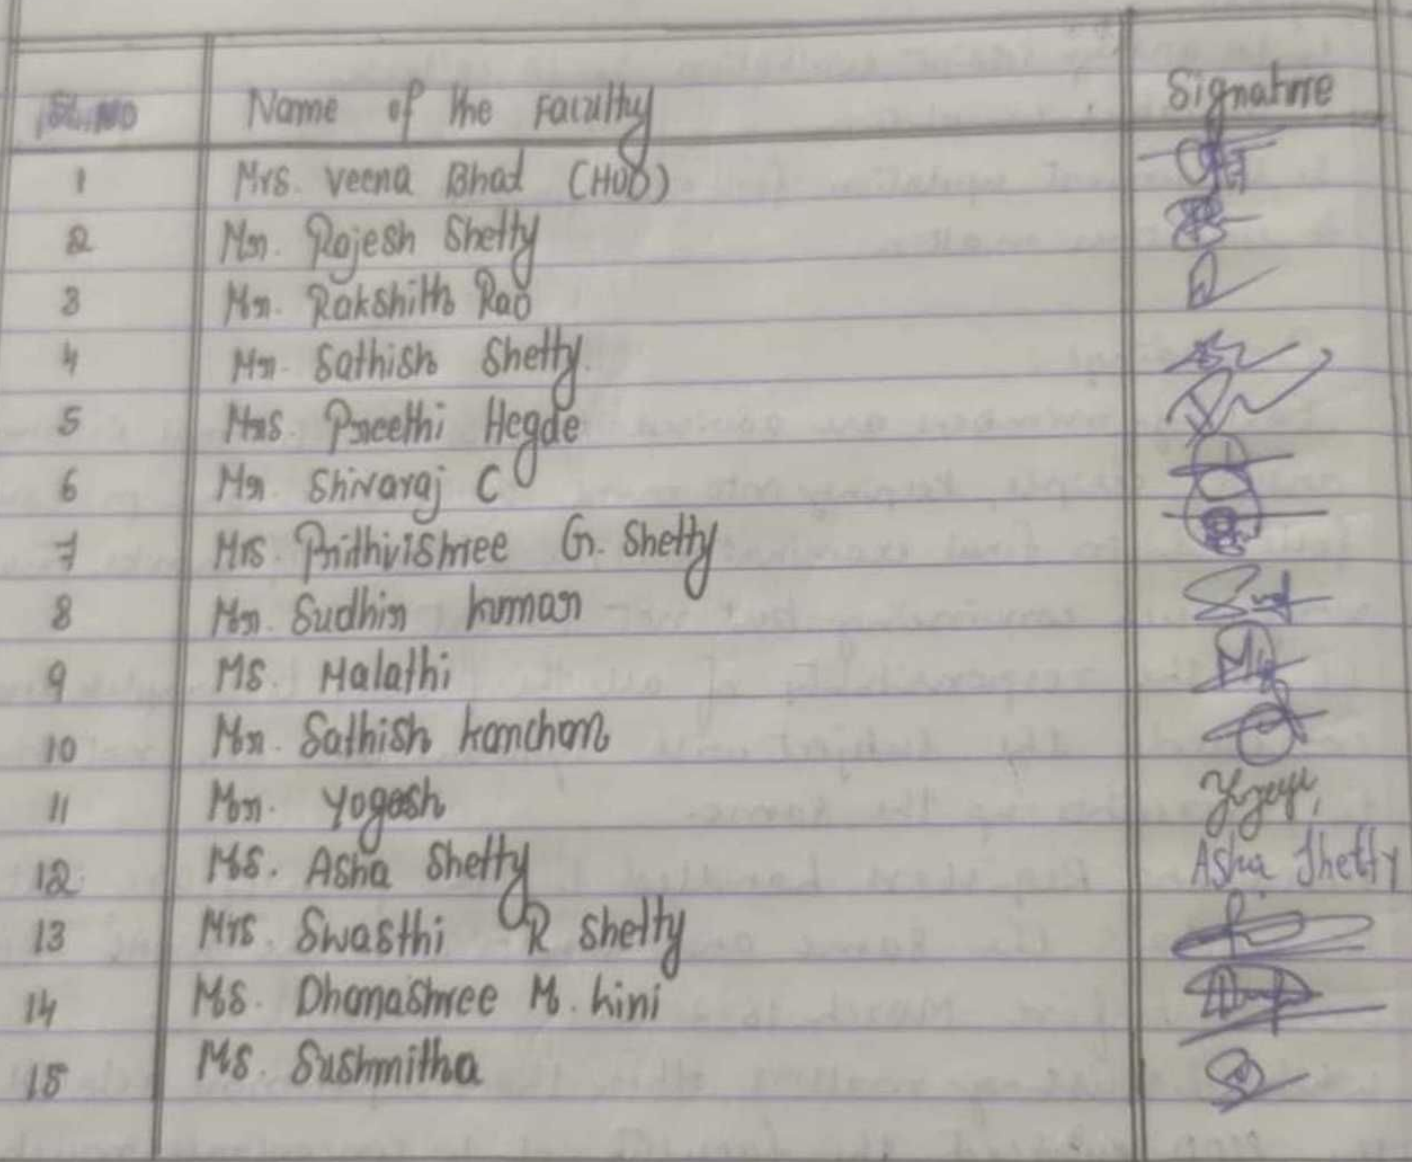 Sl.No Name of the Faculty Signature
1 Mrs. Veena Bhat (HOD)
2 Mr. Rajesh Shetty
3 Mr. Rakshith Rao
4 Mr. Sathish Shetty.
5 Mrs. Preethi Hegde
6 Mr Shivaraj C
7 Mrs. Prithvishree G. Shetty
8 Mr. Sudhir kumar
9 Ms. Malathi
10 Mr. Sathish kanchan
11 Mr. Yogesh
12 Ms. Asha Shetty Asha Shetty
13 Mrs. Swasthi R Shetty
14 Ms. Dhanashree M. kini
15 Ms. Sushmitha